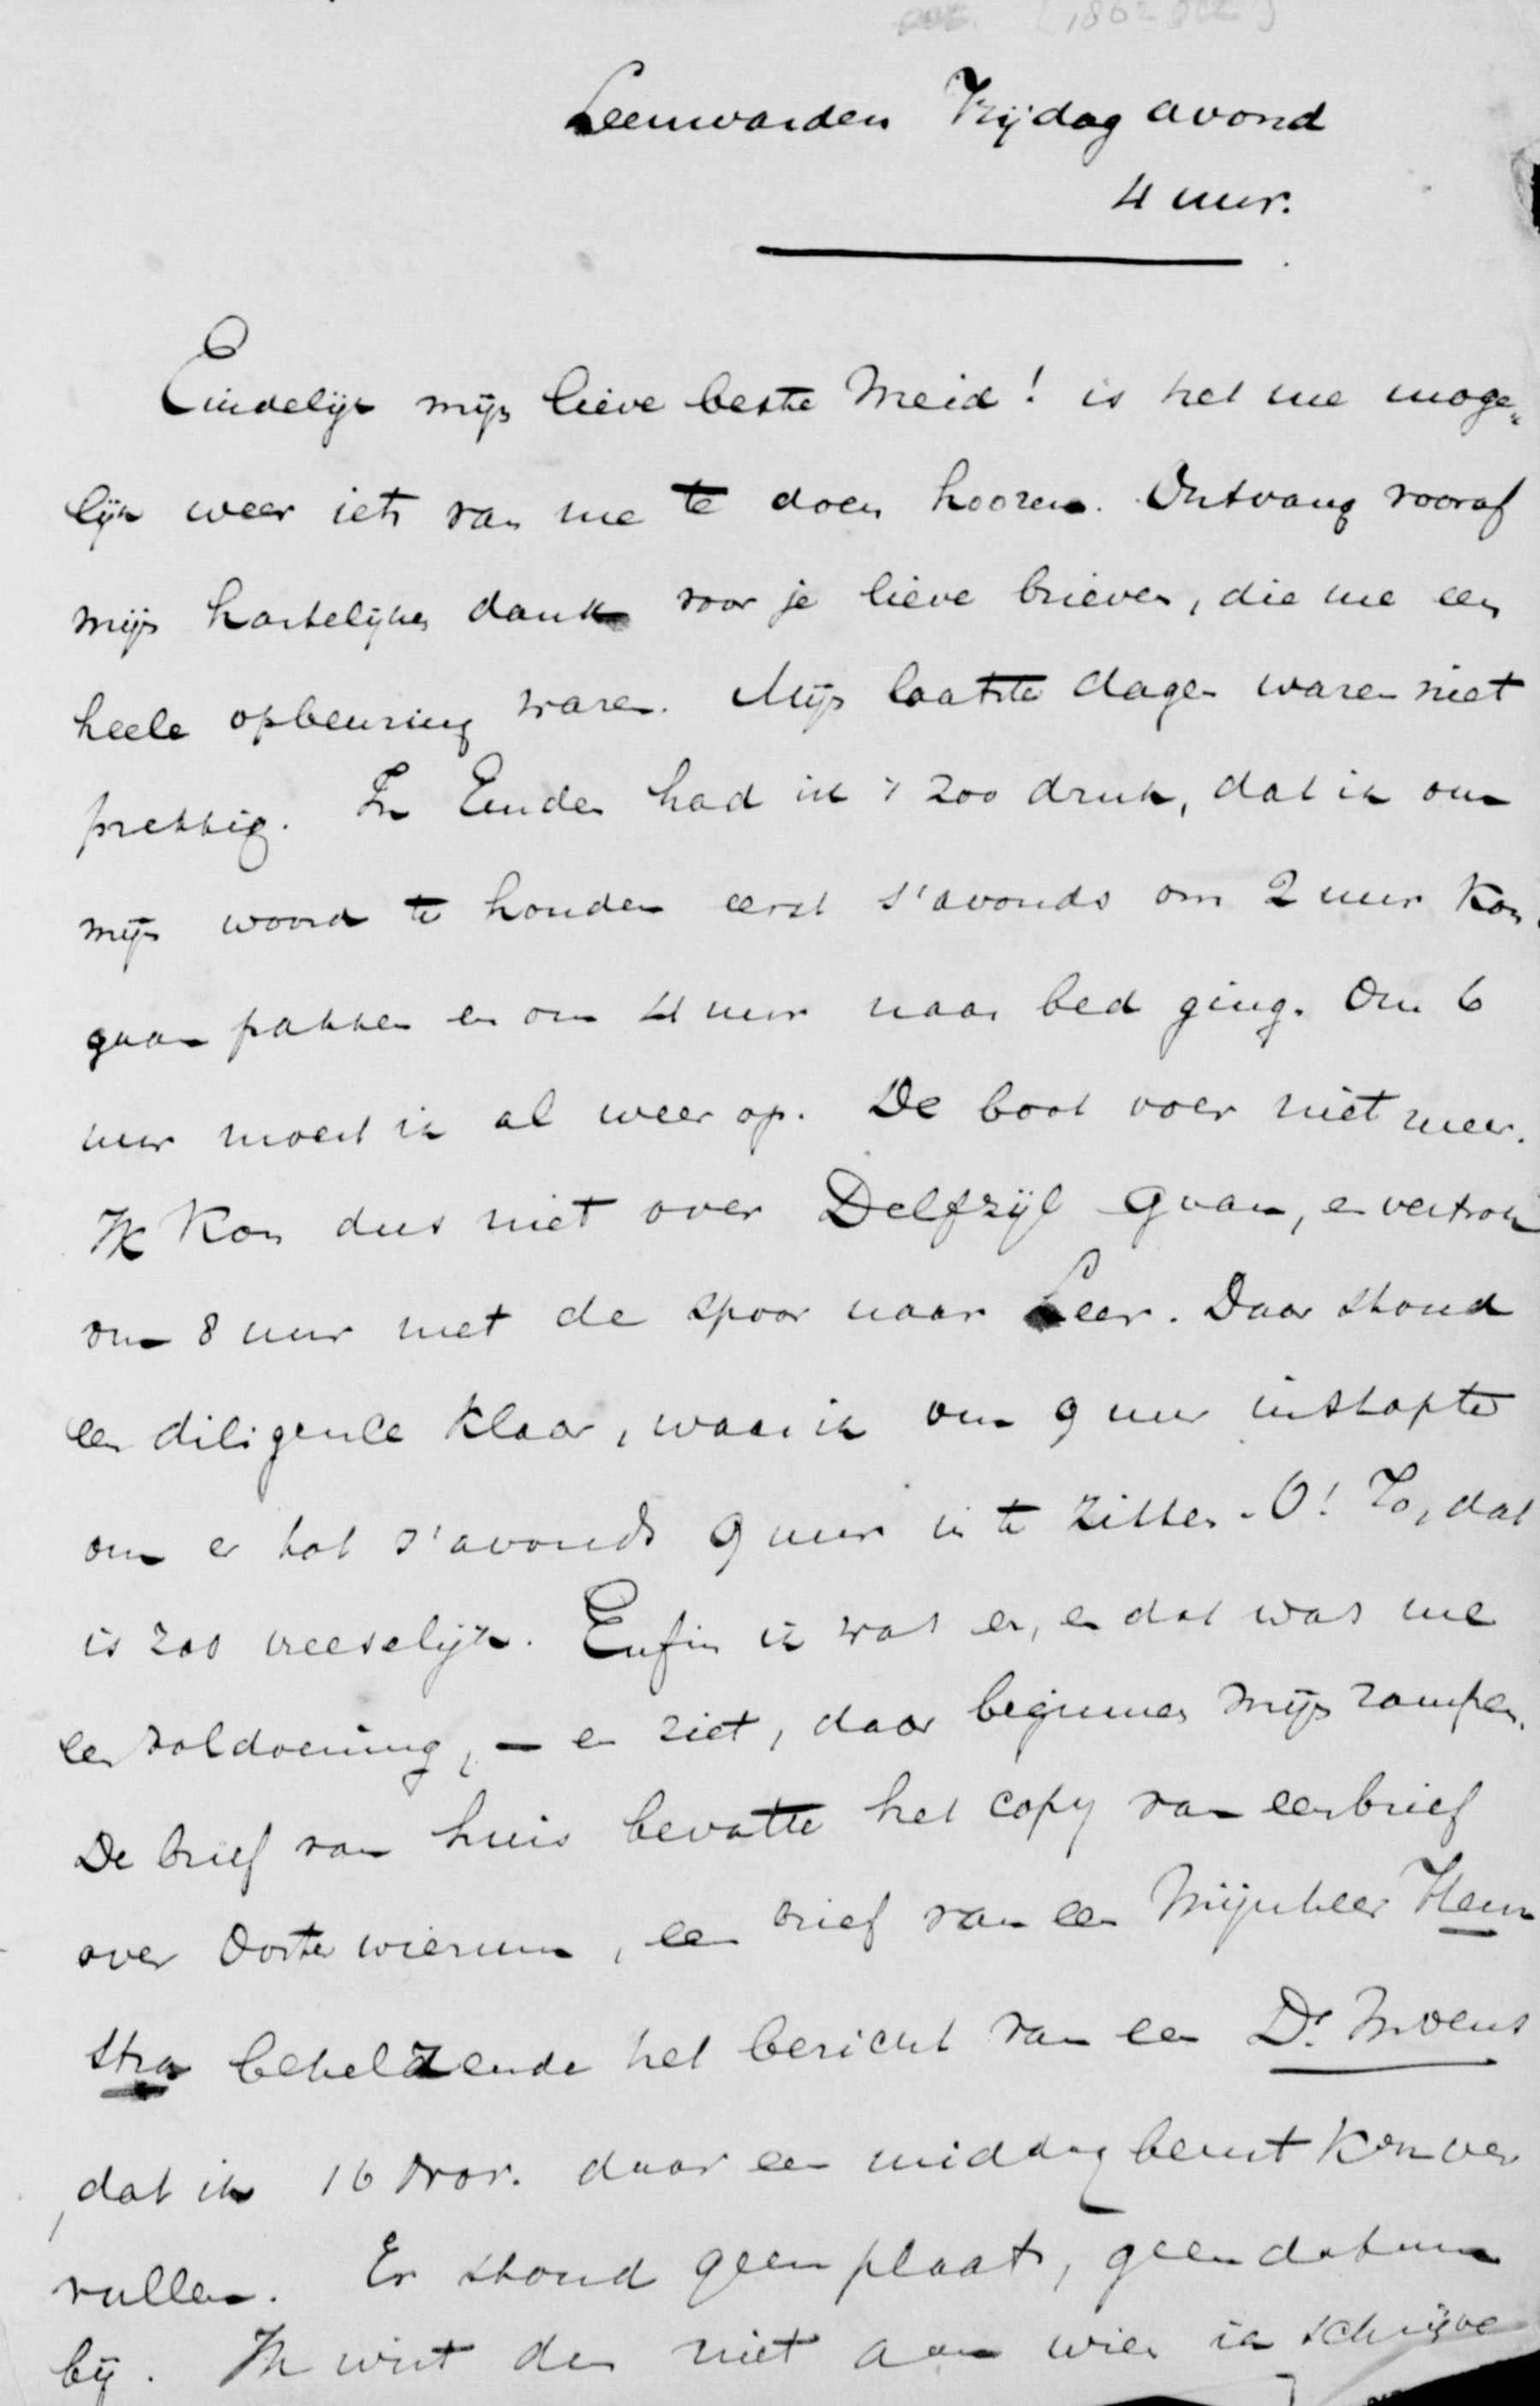 [1862 Oct]
Leeuwarden Vrijdag avond
4 uur.
Eindelijk mijn lieve beste Meid! is het me moge„
lijk weer iets van me te doen hooren. Ontvang vooraf
mijn hartelijken dank voor je lieve brieven, die me een
heele opbeuring waren. Mijn laatste dagen waren niet
prettig. In Emden had ik 't zoo druk, dat ik om
mijn woord te houden eerst s'avonds om 2 uur kon
gaan pakken en om 4 uur naar bed ging. Om 6
uur moest ik al weer op. De boot voer niet meer.
Ik kon dus niet over Delfzijl gaan, en vertrok
om 8 uur met de spoor naar Leer. Daar stond
een diligence klaar, waar ik om 9 uur instapte
om er tot s'avonds 9 uur in te zitten. O! Zo, dat
is zoo vreeselijk. Enfin ik was er, en dat was me
een voldoening, — en ziet, daar beginnen mijn rampen.
De brief van huis bevatte het copy van een brief
over Oosterwierum, een brief van een Mijnheer Heem
stra behelzende het bericht van een Ds. Moens
dat ik 16 Nov. daar een middagbeurt kon ver
vullen. Er stond geen plaats, geen datum
bij. Ik wist dus niet aan wien ik schrijve